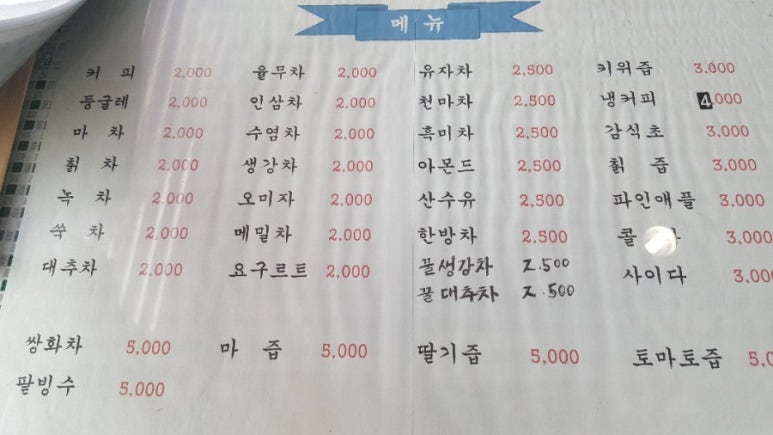 메 뉴
커 피 2,000 율무차 2,000 유자차 2,500 키위즙 3,000
둥굴레 2,000 인삼차 2,000 천마차 2,500 냉커피 4,000
마 차 2,000 수염차 2,000 흑미차 2,500 감식초 3,000
칡 차 2,000 생강차 2,000 아몬드 2,500 칡 즙 3,000
녹 차 2,000 오미자 2,000 산수유 2,500 파인애플 3,000
쑥 차 2,000 메밀차 2,000 한방차 2,500 콜 3,000
대추차 2,000 요구르트 2,000 꿀생강차 2.500 사이다 3,00
꿀대추차 2.500
쌍화차 5,000 마 즙 5,000 딸기즙 5,000 토마토즙 5,0
팥빙수 5,000